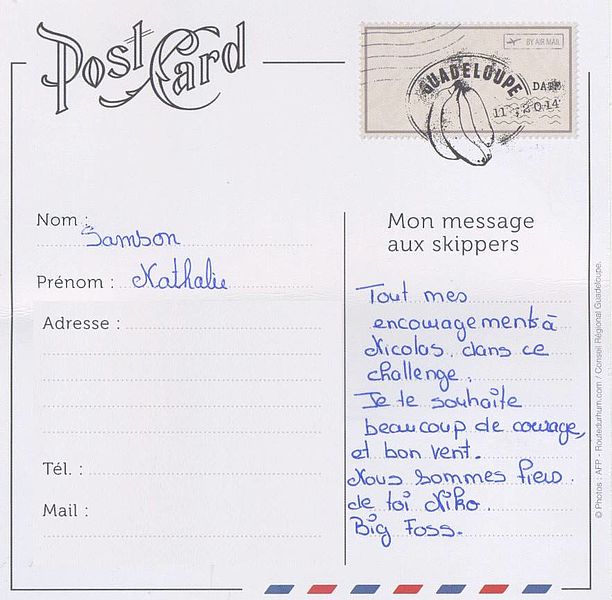 Post Card
BY AIR MAIL
GUADELOUPE
DATE
Nom :
Sambon
Prénom : Nathalie
Adresse :
Tél. :
Mail :
Mon message
aux skippers
Tout mes
encouragements à
Nicolas. dans ce
challenge.
Je te souhaite
beaucoup de courage,
et bon vent.
Nous sommes fiers
de toi Niko.
Big Foss.
© Photos : AFP - Routedurhum.com / Conseil Régional Guadeloupe.